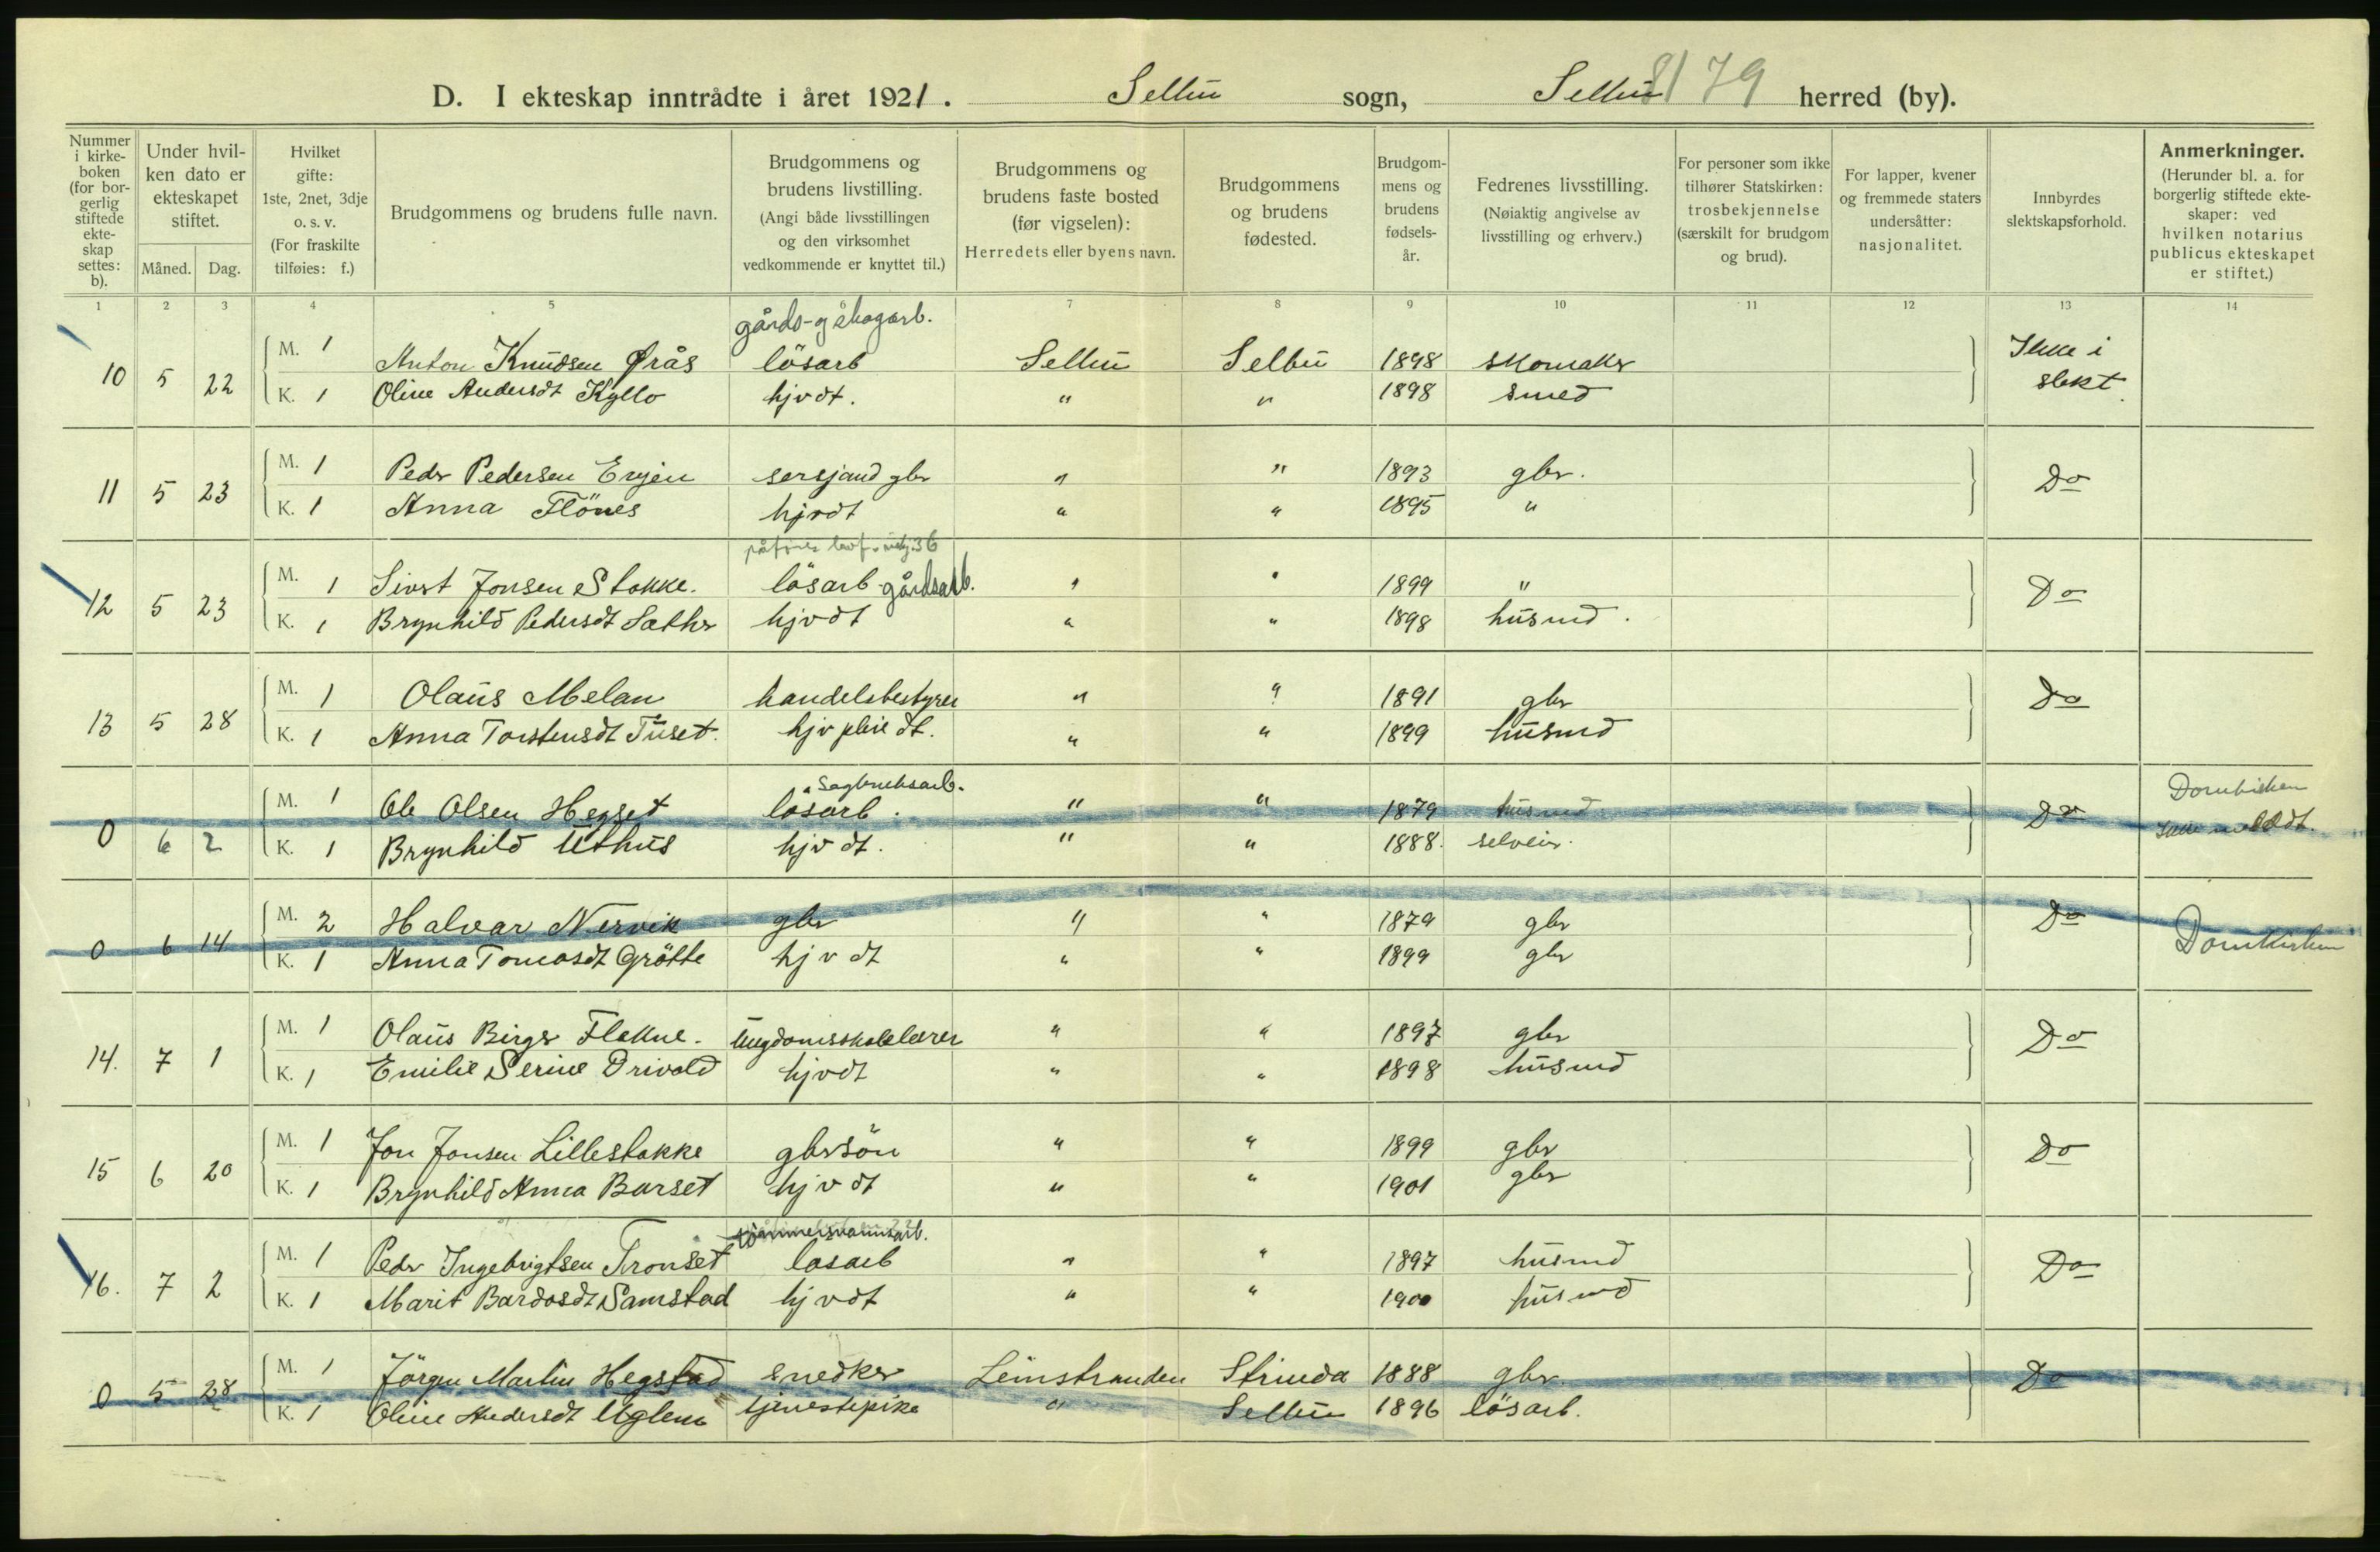 D. I ekteskap inntrådte i året 1921. Selbu sogn, Selbu herred (by). 81 79
Nummer i kirkeboken (for borgerlig stiftede ekteskap settes: b).
Under hvilken dato er ekteskapet stiftet.
Måned. Dag.
Hvilket gifte: 1ste, 2net, 3dje o. s. v. (For fraskilte tilføies: f.)
Brudgommens og brudens fulle navn.
Brudgommens og brudens livstilling. (Angi både livsstillingen og den virksomhet vedkommende er knyttet til.)
Brudgommens og brudens faste bosted (før vigselen): Herredets eller byens navn.
Brudgommens og brudens fødested.
Brudgommens og brudens fødselsår.
Fedrenes livsstilling. (Nøiaktig angivelse av livsstilling og erhverv.)
For personer som ikke tilhører Statskirken: trosbekjennelse (særskilt for brudgom og brud).
For lapper, kvener og fremmede staters undersåtter: nasjonalitet.
Innbyrdes slektskapsforhold.
Anmerkninger. (Herunder bl. a. for borgerlig stiftede ekteskaper: ved hvilken notarius publicus ekteskapet er stiftet.)
1 2 3 4 5 6 7 8 9 10 11 12 13 14
gårds- og skogarb.
10 5 22 M. 1 Anton Knudsen Ørås lösarb Selbu Selbu 1898 skomaker Ikke i slekt
K. 1 Oline Andersdt Kyllo hjvdt. " " 1898 smed
11 5 23 M. 1 Peder Pedersen Evjen sersjand gbr " " 1893 gbr. Do
K. 1 Anna Flönes hjvdt " " 1895 "
12 5 23 M. 1 Sivert Jonsen Stokke. lösarb gårdsarb. " " 1899 " Do
K. 1 Brynhild Pedersdt Sæther hjvdt " " 1898 husmd.
13 5 28 M. 1 Olaus Melan handelsbestyrer " " 1891 gbr Do
K. 1 Anna Torstensdt Tuset. hjv pleie dt. " " 1899 husmd
Sagbruksarb.
0 6 2 M. 1 Ole Olsen Hegset lösarb. " " 1879 husmd Do Domkirken
K. 1 Brynhild Uthus hjvdt. " " 1888. selveier. meddt.
0 6 14 M. 2 Halvar Nervik gbr " " 1879 gbr Do Domkirken
K. 1 Anna Tomasdt Grötte hjvdt " " 1899 gbr
14. 7 1 M. 1 Olaus Birger Flakne. Ungdomsskolelærer " " 1897 gbr Do
K. 1 Emilie Serine Drivold hjvdt " " 1898 husmd
15 6 20 M. 1 Jon Jonsen Lillestokke gbrsön " " 1899 gbr Do
K. 1 Brynhild Anna Barset hjvdt " " 1901 gbr
tömmermannsarb.
16. 7 2 M. 1 Peder Ingebrigtsen Tronset lösarb " " 1897 husmd Do
K. 1 Marit Bardosdt Samstad hjvdt " " 1900 husmd
0 5 28 M. 1 Jörgen Martin Hegstad snedker Leinstranden Strinda 1888 gbr. Do
K. 1 Oline Andersdt Uglem tjenestepike " Selbu 1896 lösarb.